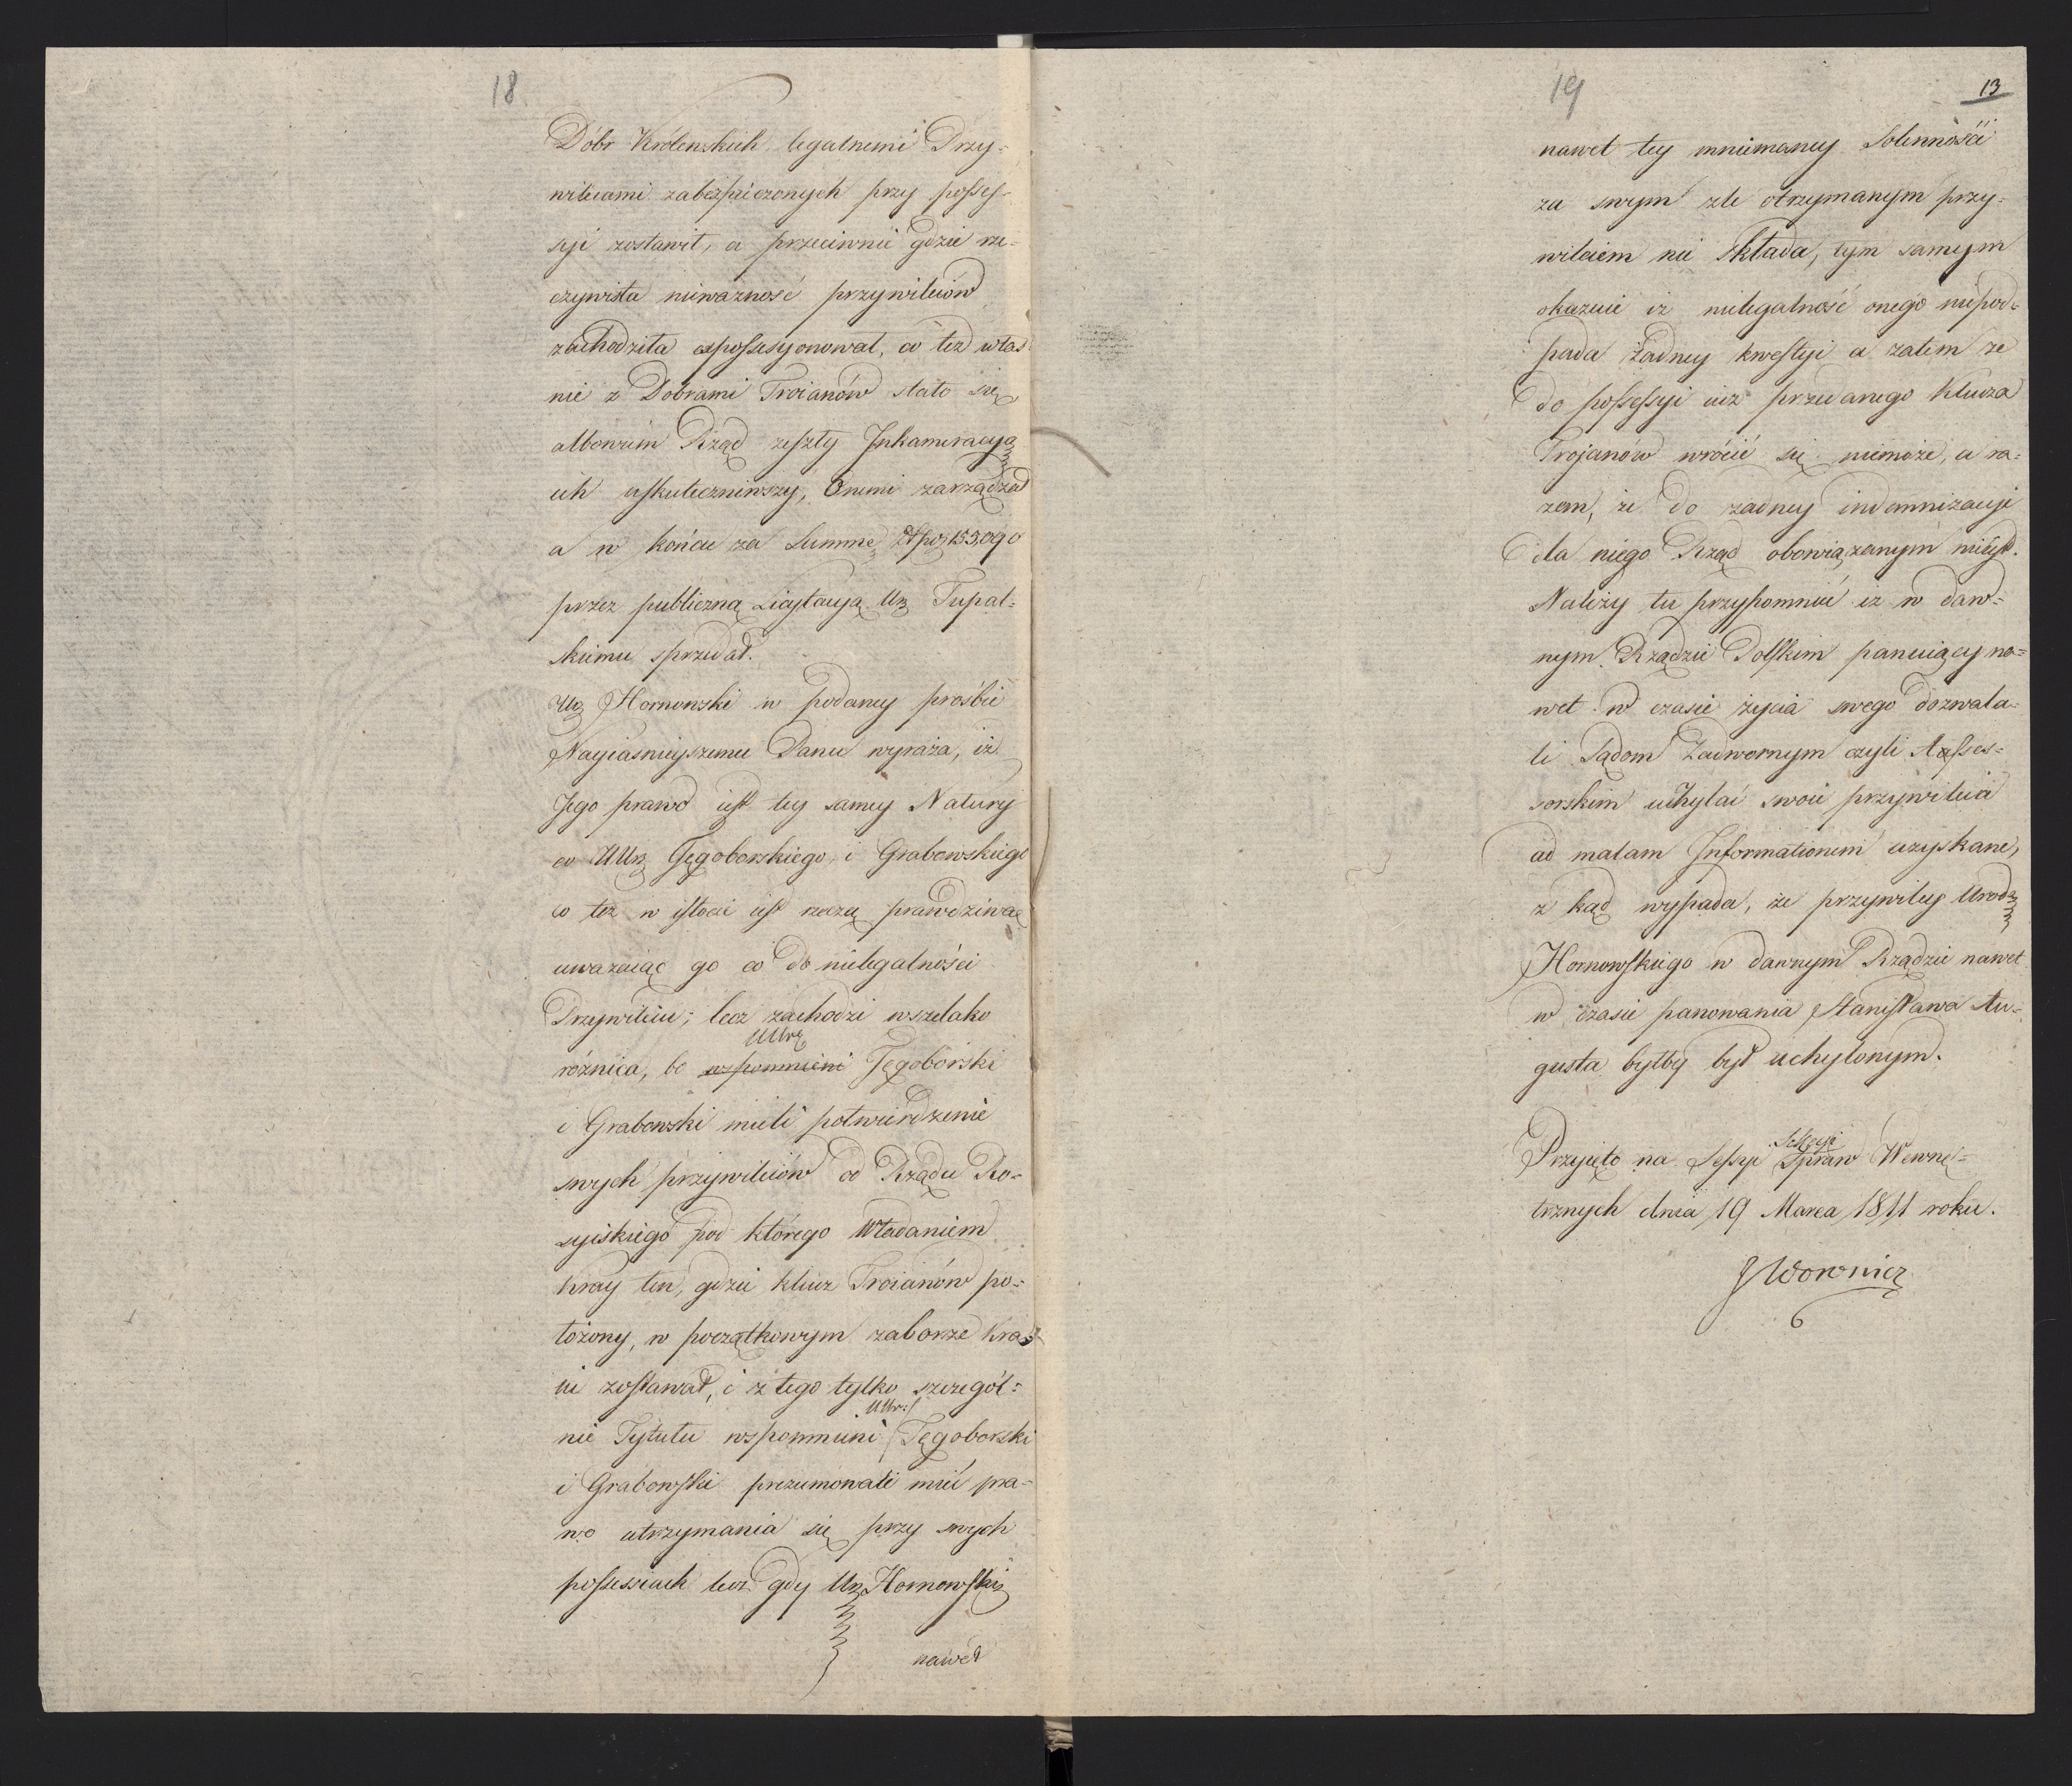 18
Dóbr Królewskich legalnemi Przy-
wileiami zabezpieczonych przy posses-
syi zostawił, a przeciwnie gdzie rze-
czywista nieważność przywileiów
zachodziła expossesyonował, co też właś-
nie z Dobrami Troianów stało się
albowiem Rząd zeszły Inkameracyą
ich uskuteczniwszy, Onemi zarządzał
a w końcu za Summę
przez publiczną Licytacyą Ur Tupal-
skiemu sprzedał.
Ur Hornowski w podaney prośbie
Nayiaśnieyszemu Panu wyraża, iż
Jego prawo iest tey samey Natury
co UUr Tęgoborskiego, i Grabowskiego
co też w istocie iest rzeczą prawdziwą
uważaiąc go co do nielegalności
Przywileiu; lecz zachodzi wszelako
UUrr
różnica, bo wspomnieni Tęgoborski
i Grabowski mieli potwierdzenie
swych przywileiów od Rządu Ro-
syiskiego pod którego Władaniem
kray ten, gdzie klucz Troianów po-
łożony, w początkowym zaborze Kra-
iu zostawał, i z tego tylko szczegól-
UUr:
nie Tytułu wspomnieni Tęgoborski
i Grabowski prezumowali mieć pra-
wo utrzymania się przy swych
possessiach lecz gdy Ur Hornowski
nawet
19
13
nawet tey mniemaney Solenności
za swym źle otrzymanym przy-
wileiem nie składa, tym samym
okazuie iż nielegalność onego niepod-
pada żadney kwestyi a zatem że
do possessyi iuż przedanego Klucza
Trojanów wrócić się niemoże, a ra-
zem, że do żadney indemnizacyi
dla niego Rząd obowiązanym nieiest.
Należy tu przypomnieć iż w daw-
nym Rządzie Polskim panuiący na-
wet w czasie życia swego dozwala-
li Sądom Zadwornym czyli Asses-
sorskim uchylać swoie przywileia
ad malam Informationem uzyskane,
z kąd wypada, że przywiley Urodz
Hornowskiego w dawnym Rządzie nawet
w czasie panowania Stanisława Au-
gusta byłby był uchylonym.
Przyięto na Sessyi Spraw Wewnę-
Sekcyi
trznych dnia 19 Marca 1811 roku.
J Woronicz